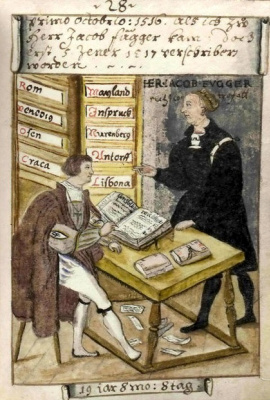 28
primo octobrio: 1516. als ich zů
Herr Jacob fugger kam
1517 verschriben
worden
HER. IACOB. FVGGER
Rom
Venedig
Ofen
Craca
Mayland
Inspruch
Nurenberg
Antorff
Lisbona
19 iar 8 mo: 8 tag